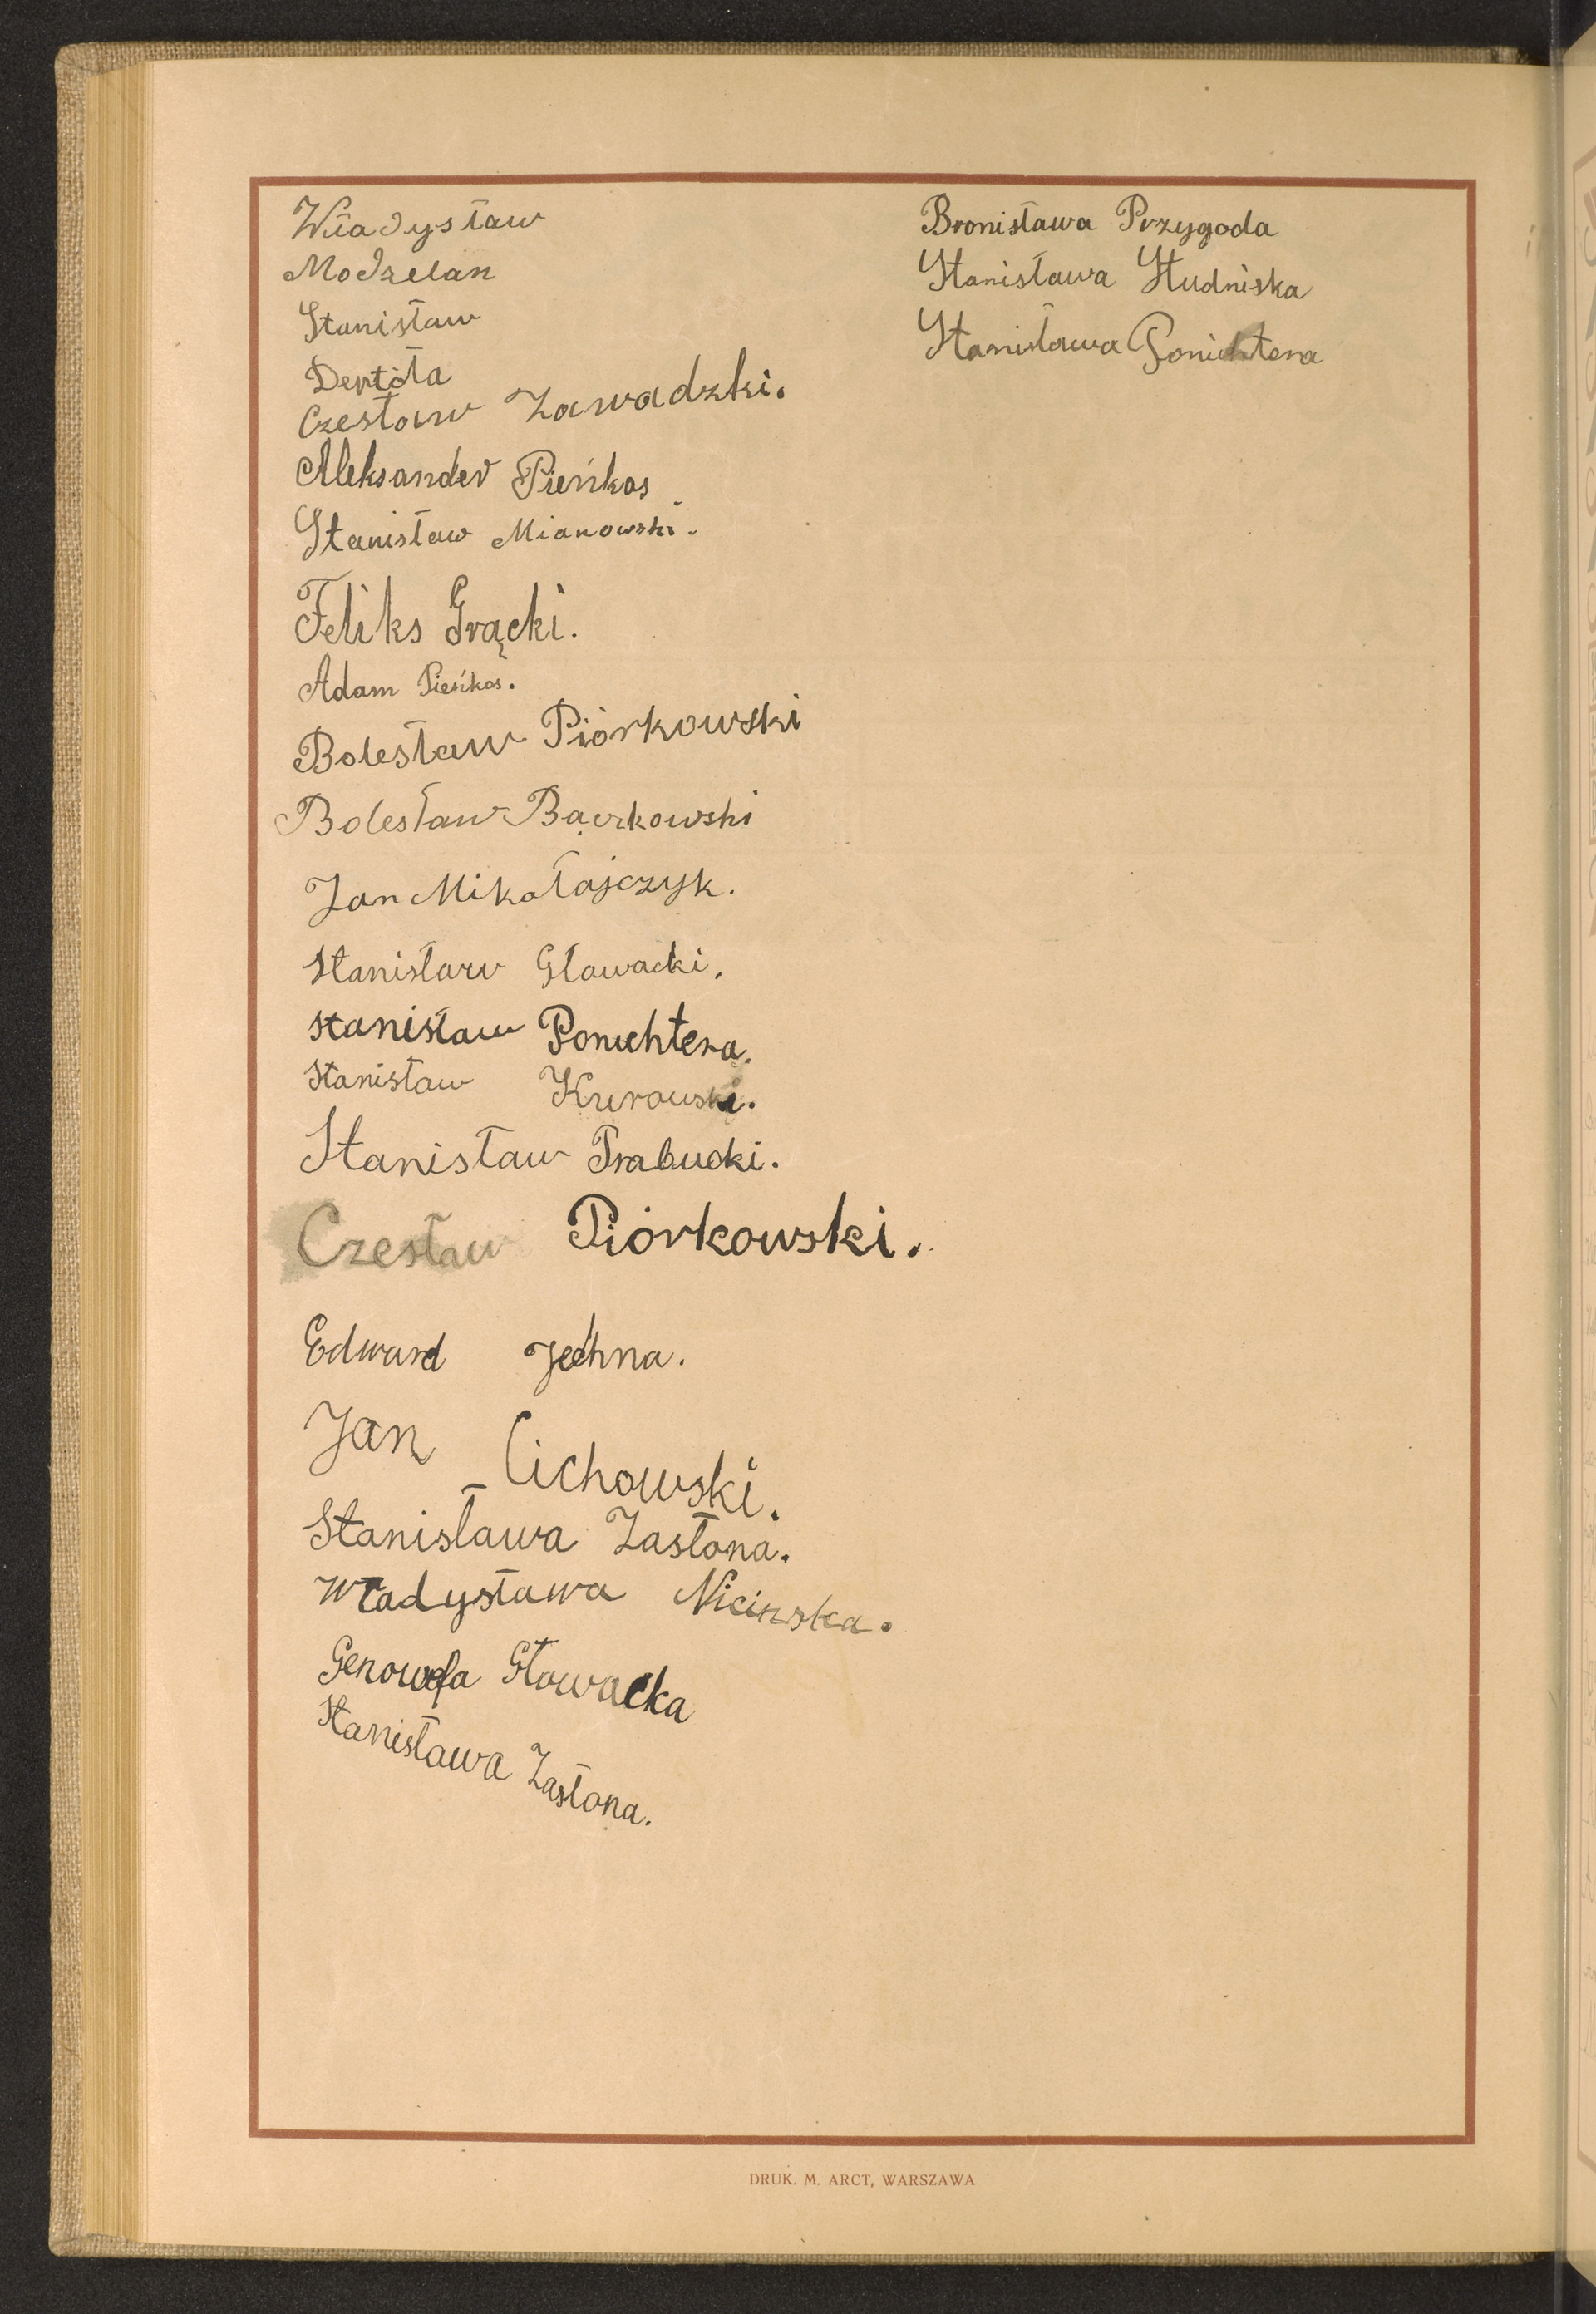 Władysław
Modzelan
Stanisław
Deptóła
Czesław Zawadzki.
Aleksander Pieńkos
Stanisław Mianowski.
Feliks Grącki.
Adam Pieńkos.
Bolesław Piórkowski
Bolesław Bączkowski
Jan Mikołajczyk.
Stanisław Gławacki.
Stanisław Ponichtera.
Stanisław Kurowski.
Stanisław Trabucki.
Czesław Piórkowski.
Edward Jechna.
Jan Cichowski.
Stanisława Zasłona.
Władysława Nicinska.
Genowefa Głowacka
Stanisława Zasłona.
Bronisława Przygoda
Stanisława Studniska
Stanisława Ponichtera
DRUK. M. ARCT, WARSZAWA